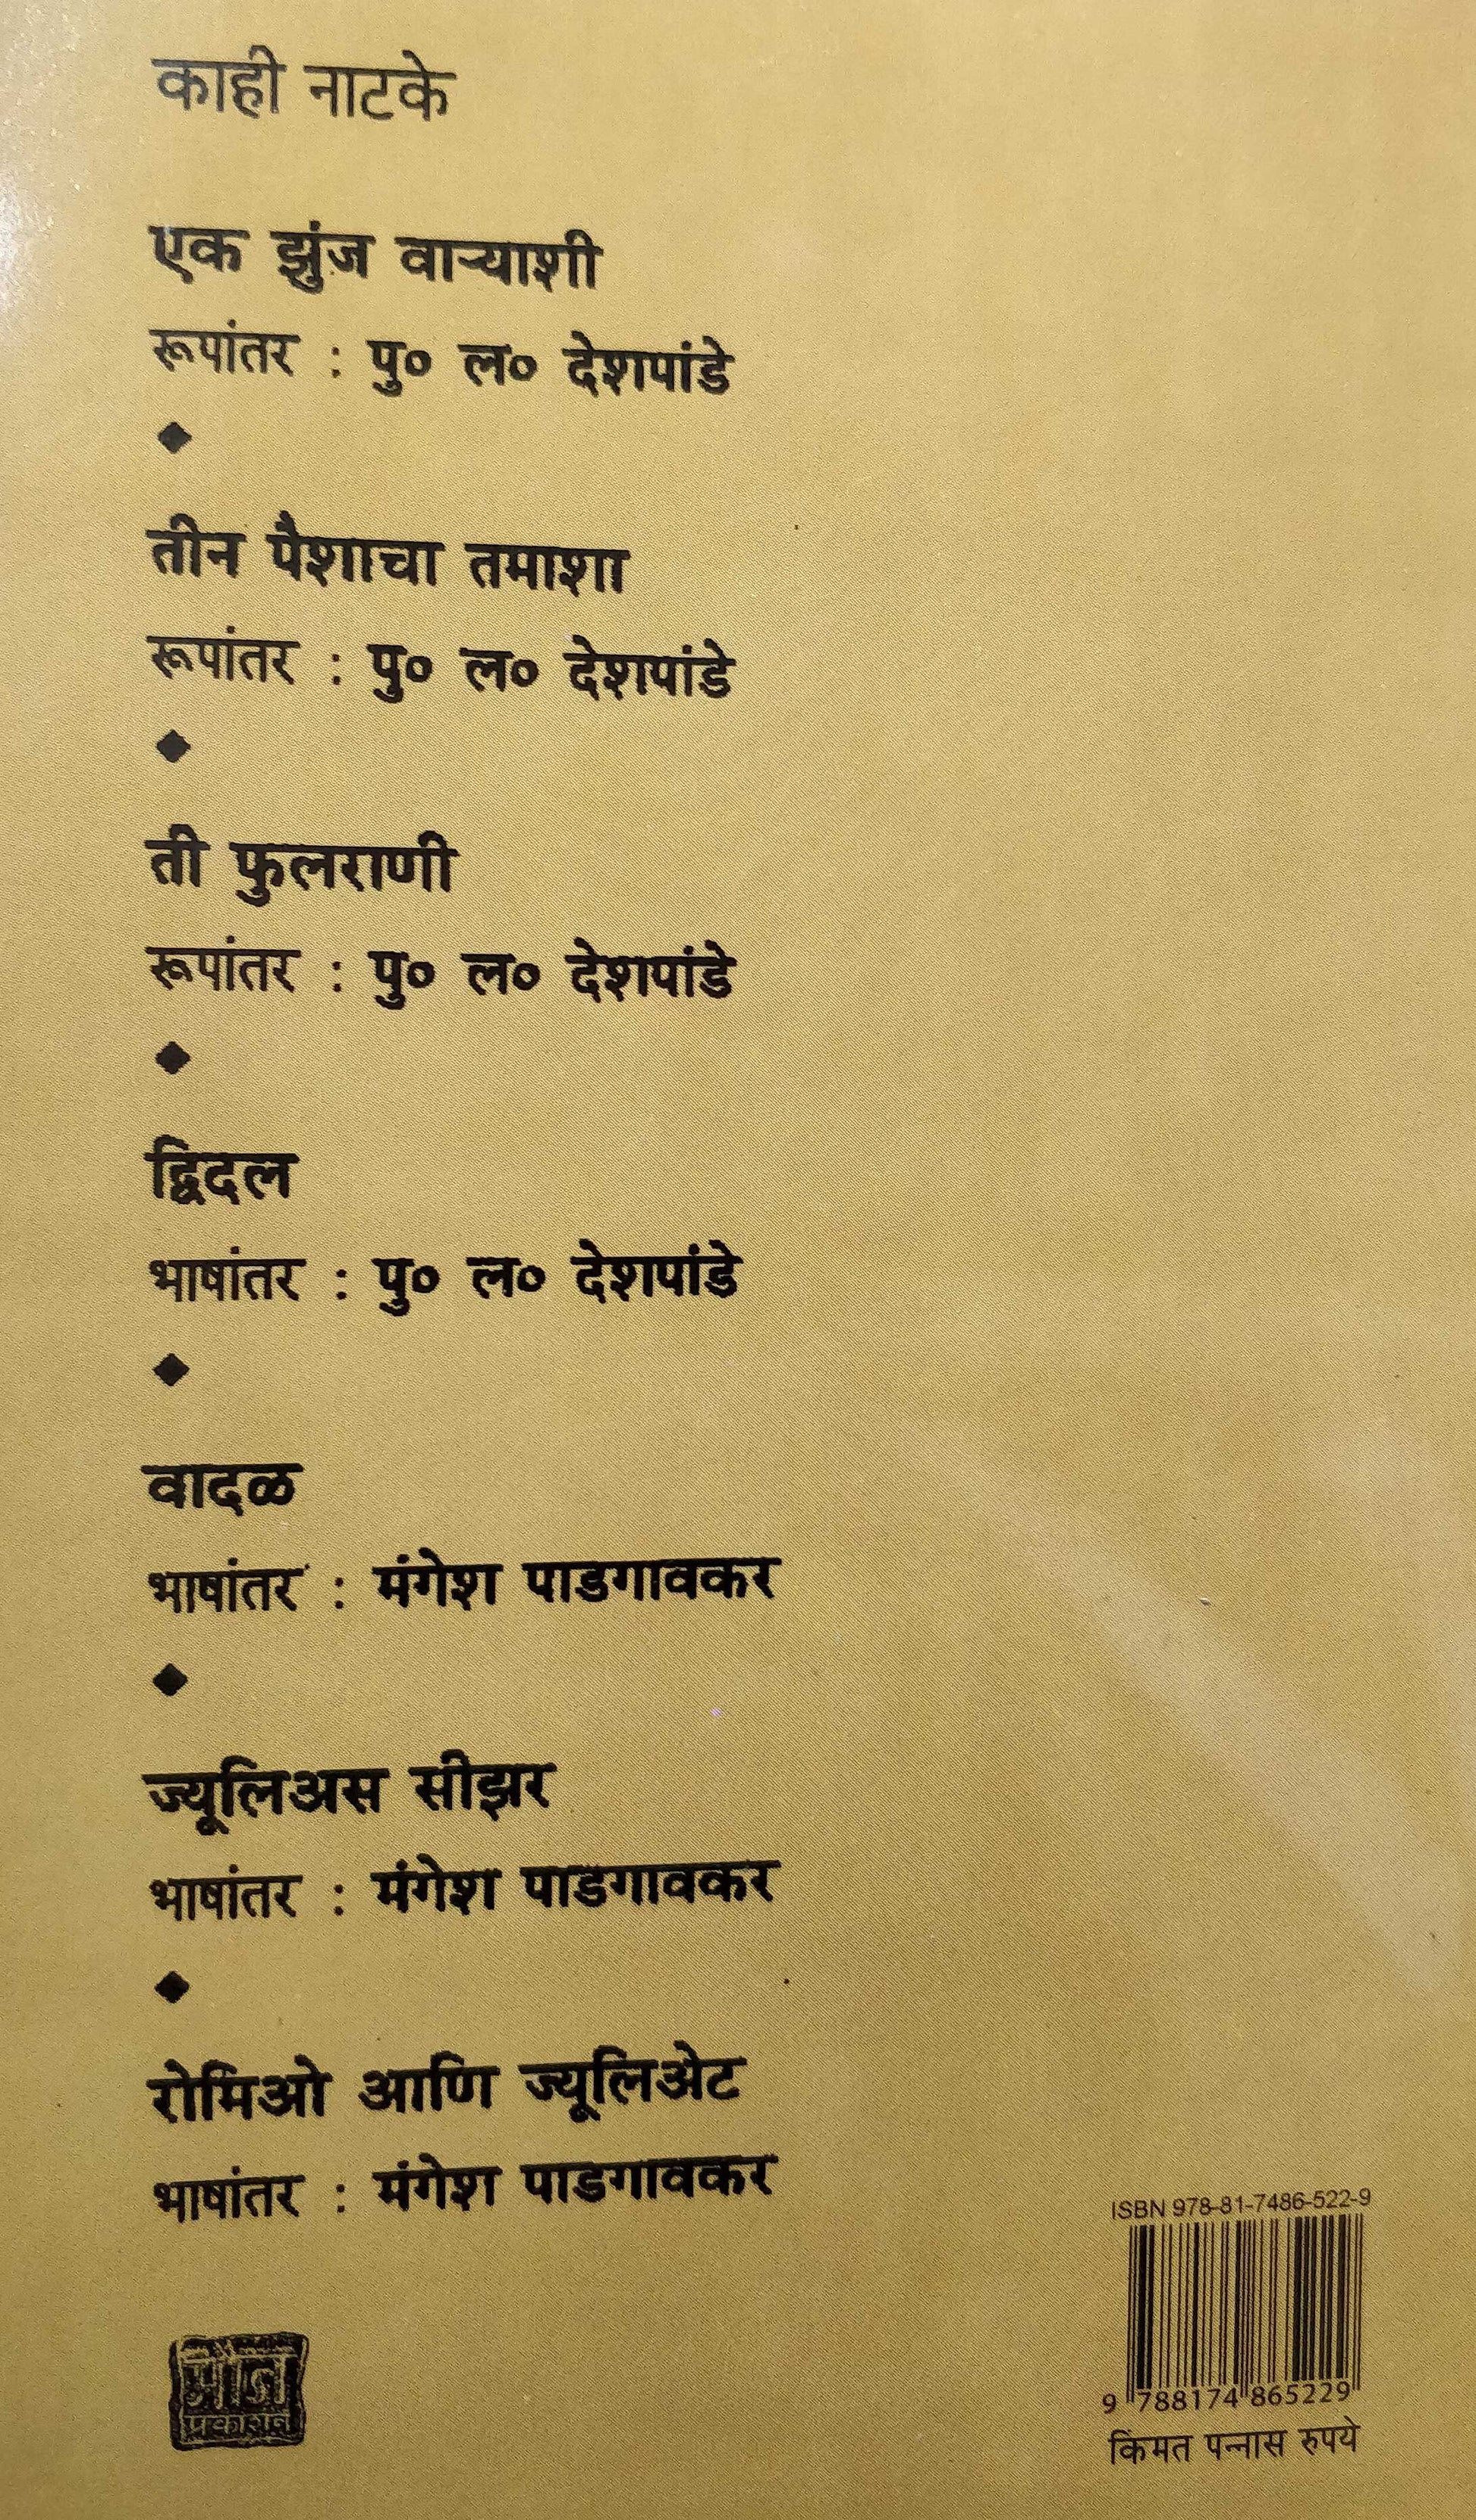 काही नाटके
एक झुंज वाऱ्याशी
रूपांतर : पु० ल० देशपांडे
तीन पैशाचा तमाशा
रूपांतर : पु० ल० देशपांडे
ती फुलराणी
रूपांतर : पु० ल० देशपांडे
द्विदल
भाषांतर : पु० ल० देशपांडे
वादळ
भाषांतर : मंगेश पाडगावकर
ज्यूलिअस सीझर
भाषांतर : मंगेश पाडगावकर
रोमिओ आणि ज्यूलिअेट
भाषांतर : मंगेश पाडगावकर
ISBN 978-81-7486-522-9
9 788174 865229
किंमत पन्नास रुपये
मौज
प्रकाशन